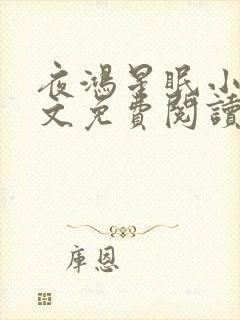 夜鴻星眠小
文免費閱讀
庫恩